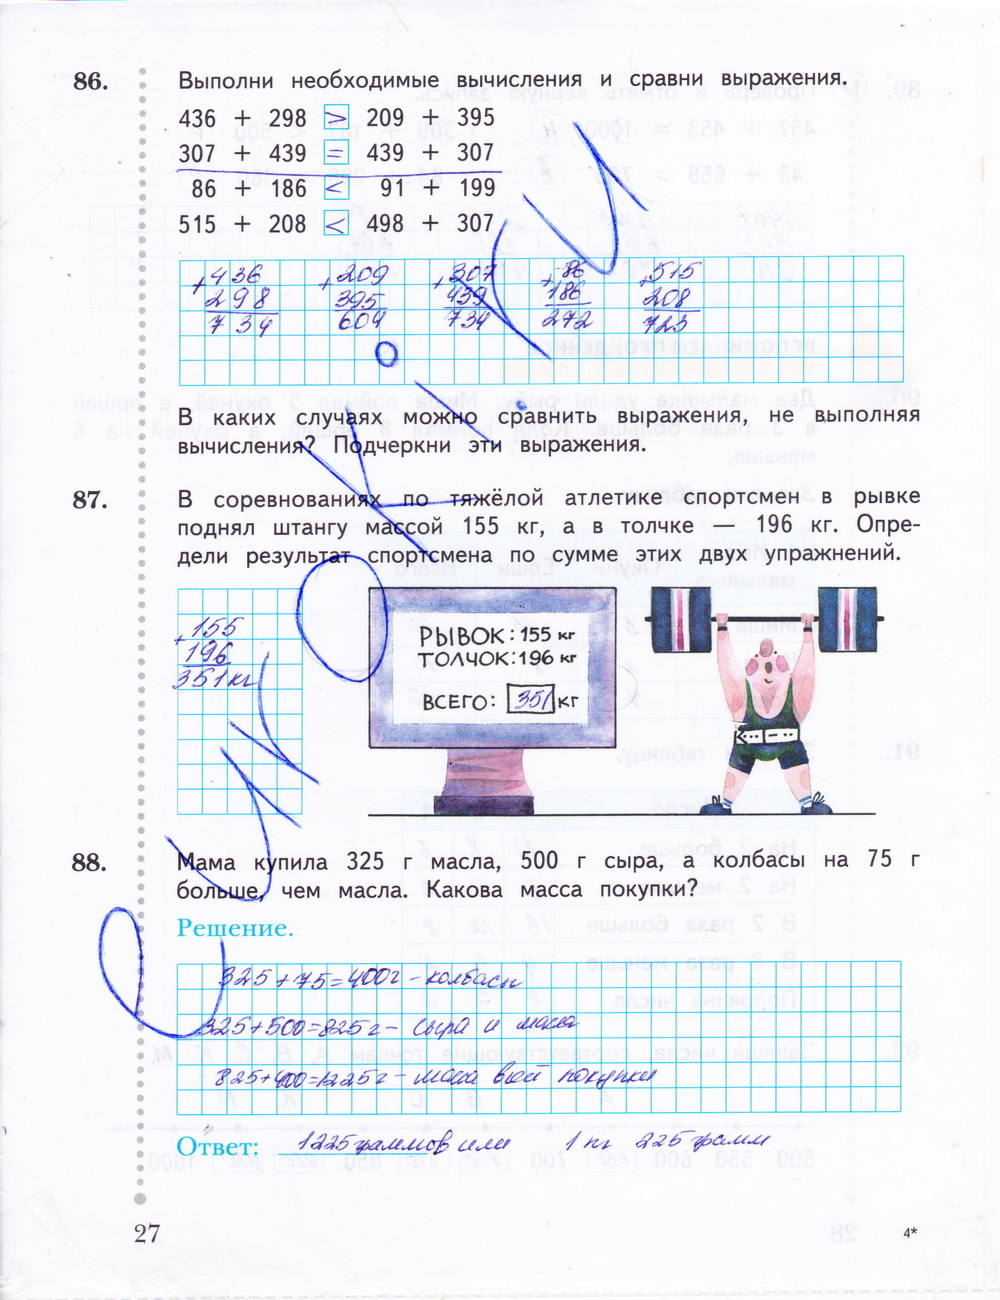 86. Выполни необходимые вычисления и сравни выражения.
436 + 298 > 209 + 395
307 + 439 = 439 + 307
86 + 186 < 91 + 199
515 + 208 < 498 + 307
+436 +209 +307 +86 +515
298 395 439 186 208
734 604 734 272 723
В каких случаях можно сравнить выражения, не выполняя
вычисления? Подчеркни эти выражения.
87. В соревнованиях по тяжёлой атлетике спортсмен в рывке
поднял штангу массой 155 кг, а в толчке — 196 кг. Опре-
дели результат спортсмена по сумме этих двух упражнений.
+155
196
351 кг
РЫВОК: 155 кг
ТОЛЧОК: 196 кг
ВСЕГО: 351 кг
88. Мама купила 325 г масла, 500 г сыра, а колбасы на 75 г
больше, чем масла. Какова масса покупки?
Решение.
325+75=400г - колбасы
325+500=825г - сыра и масла
825+400=1225г - масса всей покупки
Ответ: 1225 граммов или 1 кг 225 грамм
27
4*